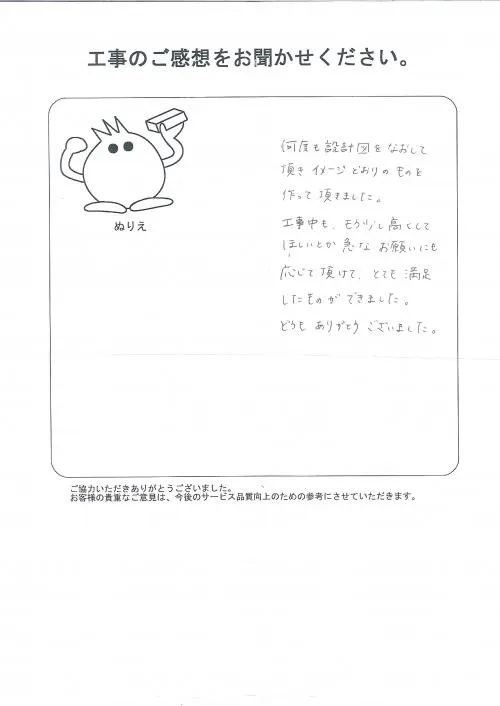 工事のご感想をお聞かせください。
ぬりえ
何度も設計図をなおして
頂きイメージどおりのものを
作って頂きました。
工事中も、もう少し高くして
ほしいとか急なお願いにも
応じて頂けて、とても満足
したものができました。
どうもありがとうございました。
ご協力いただきありがとうございました。
お客様の貴重なご意見は、今後のサービス品質向上のための参考にさせていただきます。